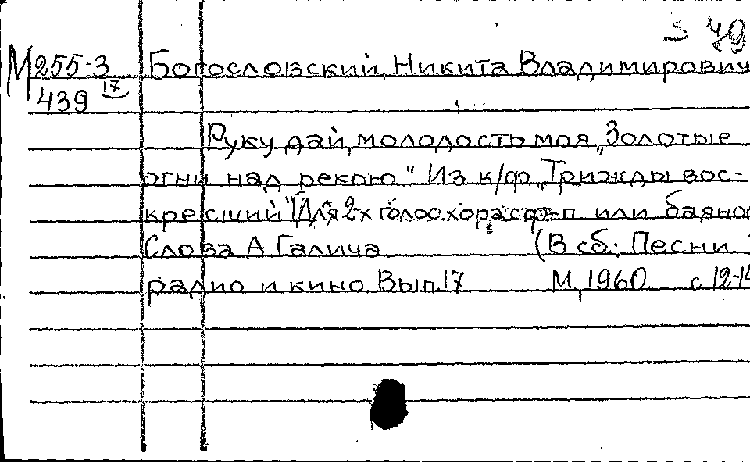 М 255-3 Богословский, Никита Владимирович
439 IX
Руку дай, молодость моя „Золотые
огни над рекою". Из к/ф „Трижды вос-
кресший" [Для 2х голос. хора с ф-п или баяно
Слова А Галича (В сб: Песни
радио и кино. Вып. 17 М, 1960 с 12-14